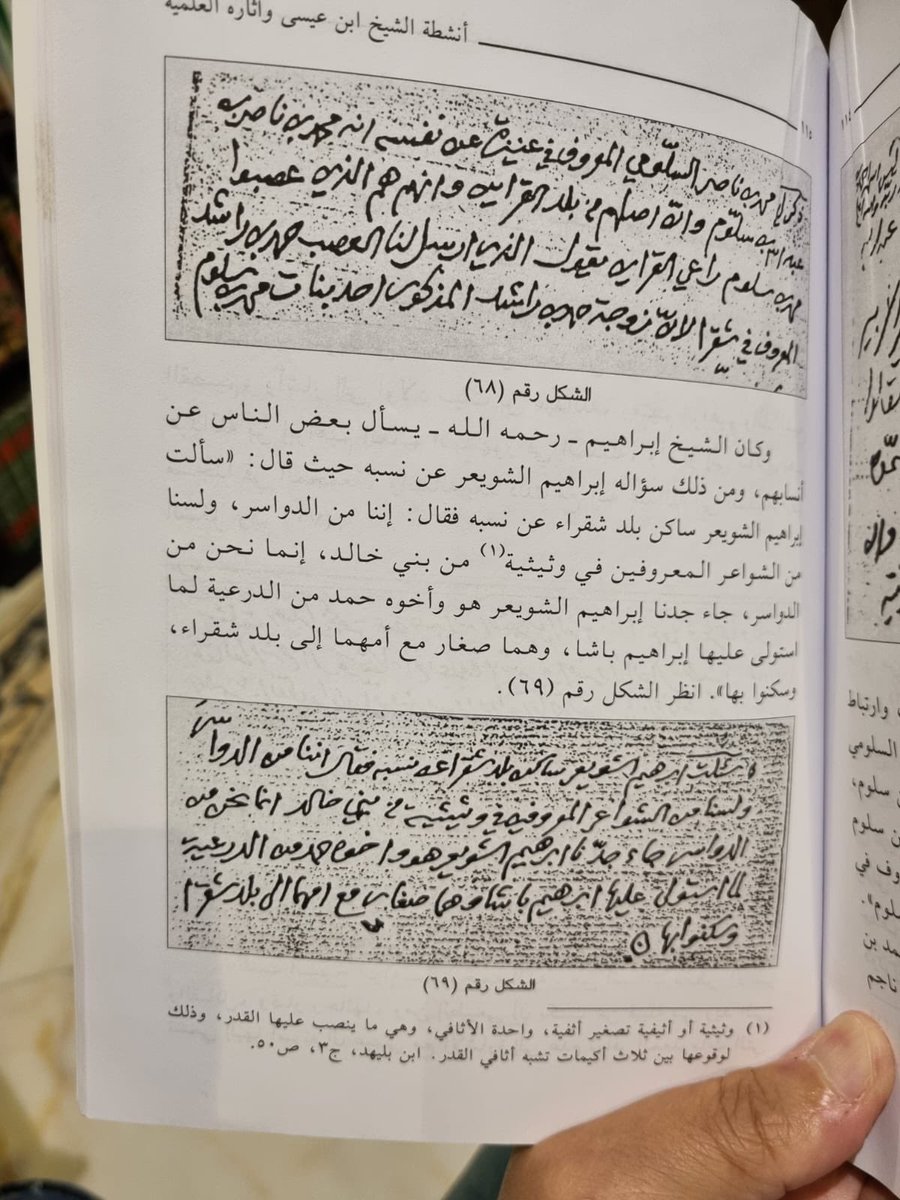 أنشطة الشيخ ابن عيسى وآثاره العلمية
١١٥
ذكر لي محمد بن ناصر السلّومي المعروف في عنيزة عن نفسه انه محمد بن ناصر بن
عبد الله بن سلّوم وانّ اصلهم من بلد القراين وانهم هم الذي عصبوا
محمد بن سلوم راعي القراين يقول الذي ارسل لنا العصب حمد بن راشد
المعروف في شقرا لانّ زوجة حمد بن راشد المذكور احد بنات محمد بن سلوم
الشكل رقم (٦٨)
وكان الشيخ إبراهيم ـ رحمه الله ـ يسأل بعض الناس عن
أنسابهم، ومن ذلك سؤاله إبراهيم الشويعر عن نسبه حيث قال: «سألت
إبراهيم الشويعر ساكن بلد شقراء عن نسبه فقال: إننا من الدواسر، ولسنا
من الشواعر المعروفين في وثيثية(١) من بني خالد، إنما نحن من
الدواسر، جاء جدنا إبراهيم الشويعر هو وأخوه حمد من الدرعية لما
استولى عليها إبراهيم باشا، وهما صغار مع أمهما إلى بلد شقراء،
وسكنوا بها». انظر الشكل رقم (٦٩).
سئلت ابرهيم الشويعر ساكن بلد شقرا عن نسبه فقال اننا من الدواسر
ولسنا من الشواعر المعروفين في وثيثيه من بني خالد انما نحن من
الدواسر جاء جدّنا ابرهيم الشويعر هو واخوه حمد من الدرعيه
لما استولى عليها ابرهيم باشا وهما صغار مع امهما الى بلد شقرا
وسكنوا بها
الشكل رقم (٦٩)
(١) وثيثية أو أثيفية تصغير أثفية، واحدة الأثافي، وهي ما ينصب عليها القدر، وذلك
لوقوعها بين ثلاث أكيمات تشبه أثافي القدر. ابن بليهد، ج٣، ص٥٠.
١١٤
وارتباط
السلومي
سلوم،
ن سلوم
وف في
سلوم».
مد بن
ناجم